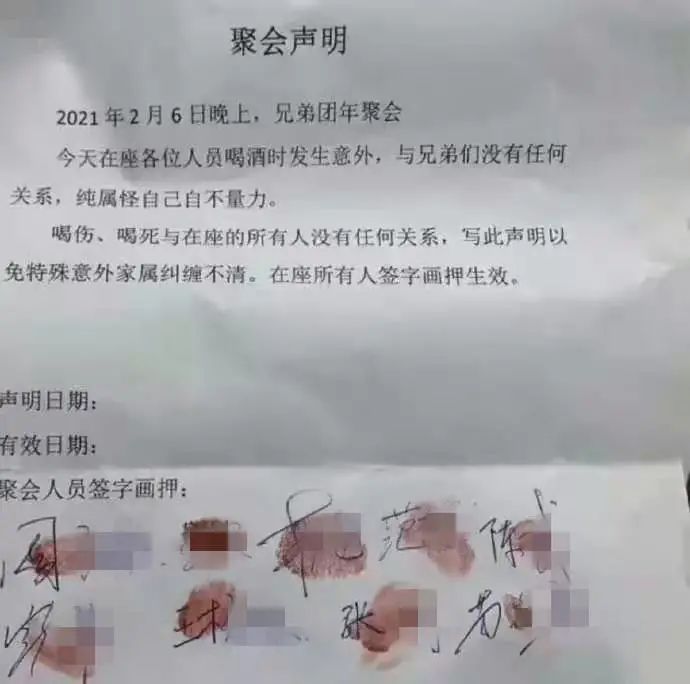 聚会声明
2021年2月6日晚上，兄弟团年聚会
今天在座各位人员喝酒时发生意外，与兄弟们没有任何
关系，纯属怪自己自不量力。
喝伤、喝死与在座的所有人没有任何关系，写此声明以
免特殊意外家属纠缠不清。在座所有人签字画押生效。
声明日期：
有效日期：
聚会人员签字画押：
范 陈
张